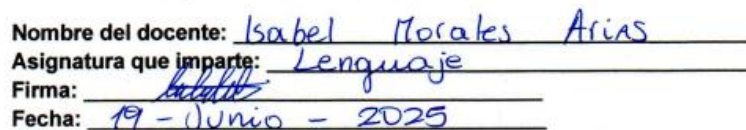 Nombre del docente: Isabel Morales Arias
Asignatura que imparte: Lenguaje
Firma:
Fecha: 19 - Junio - 2025